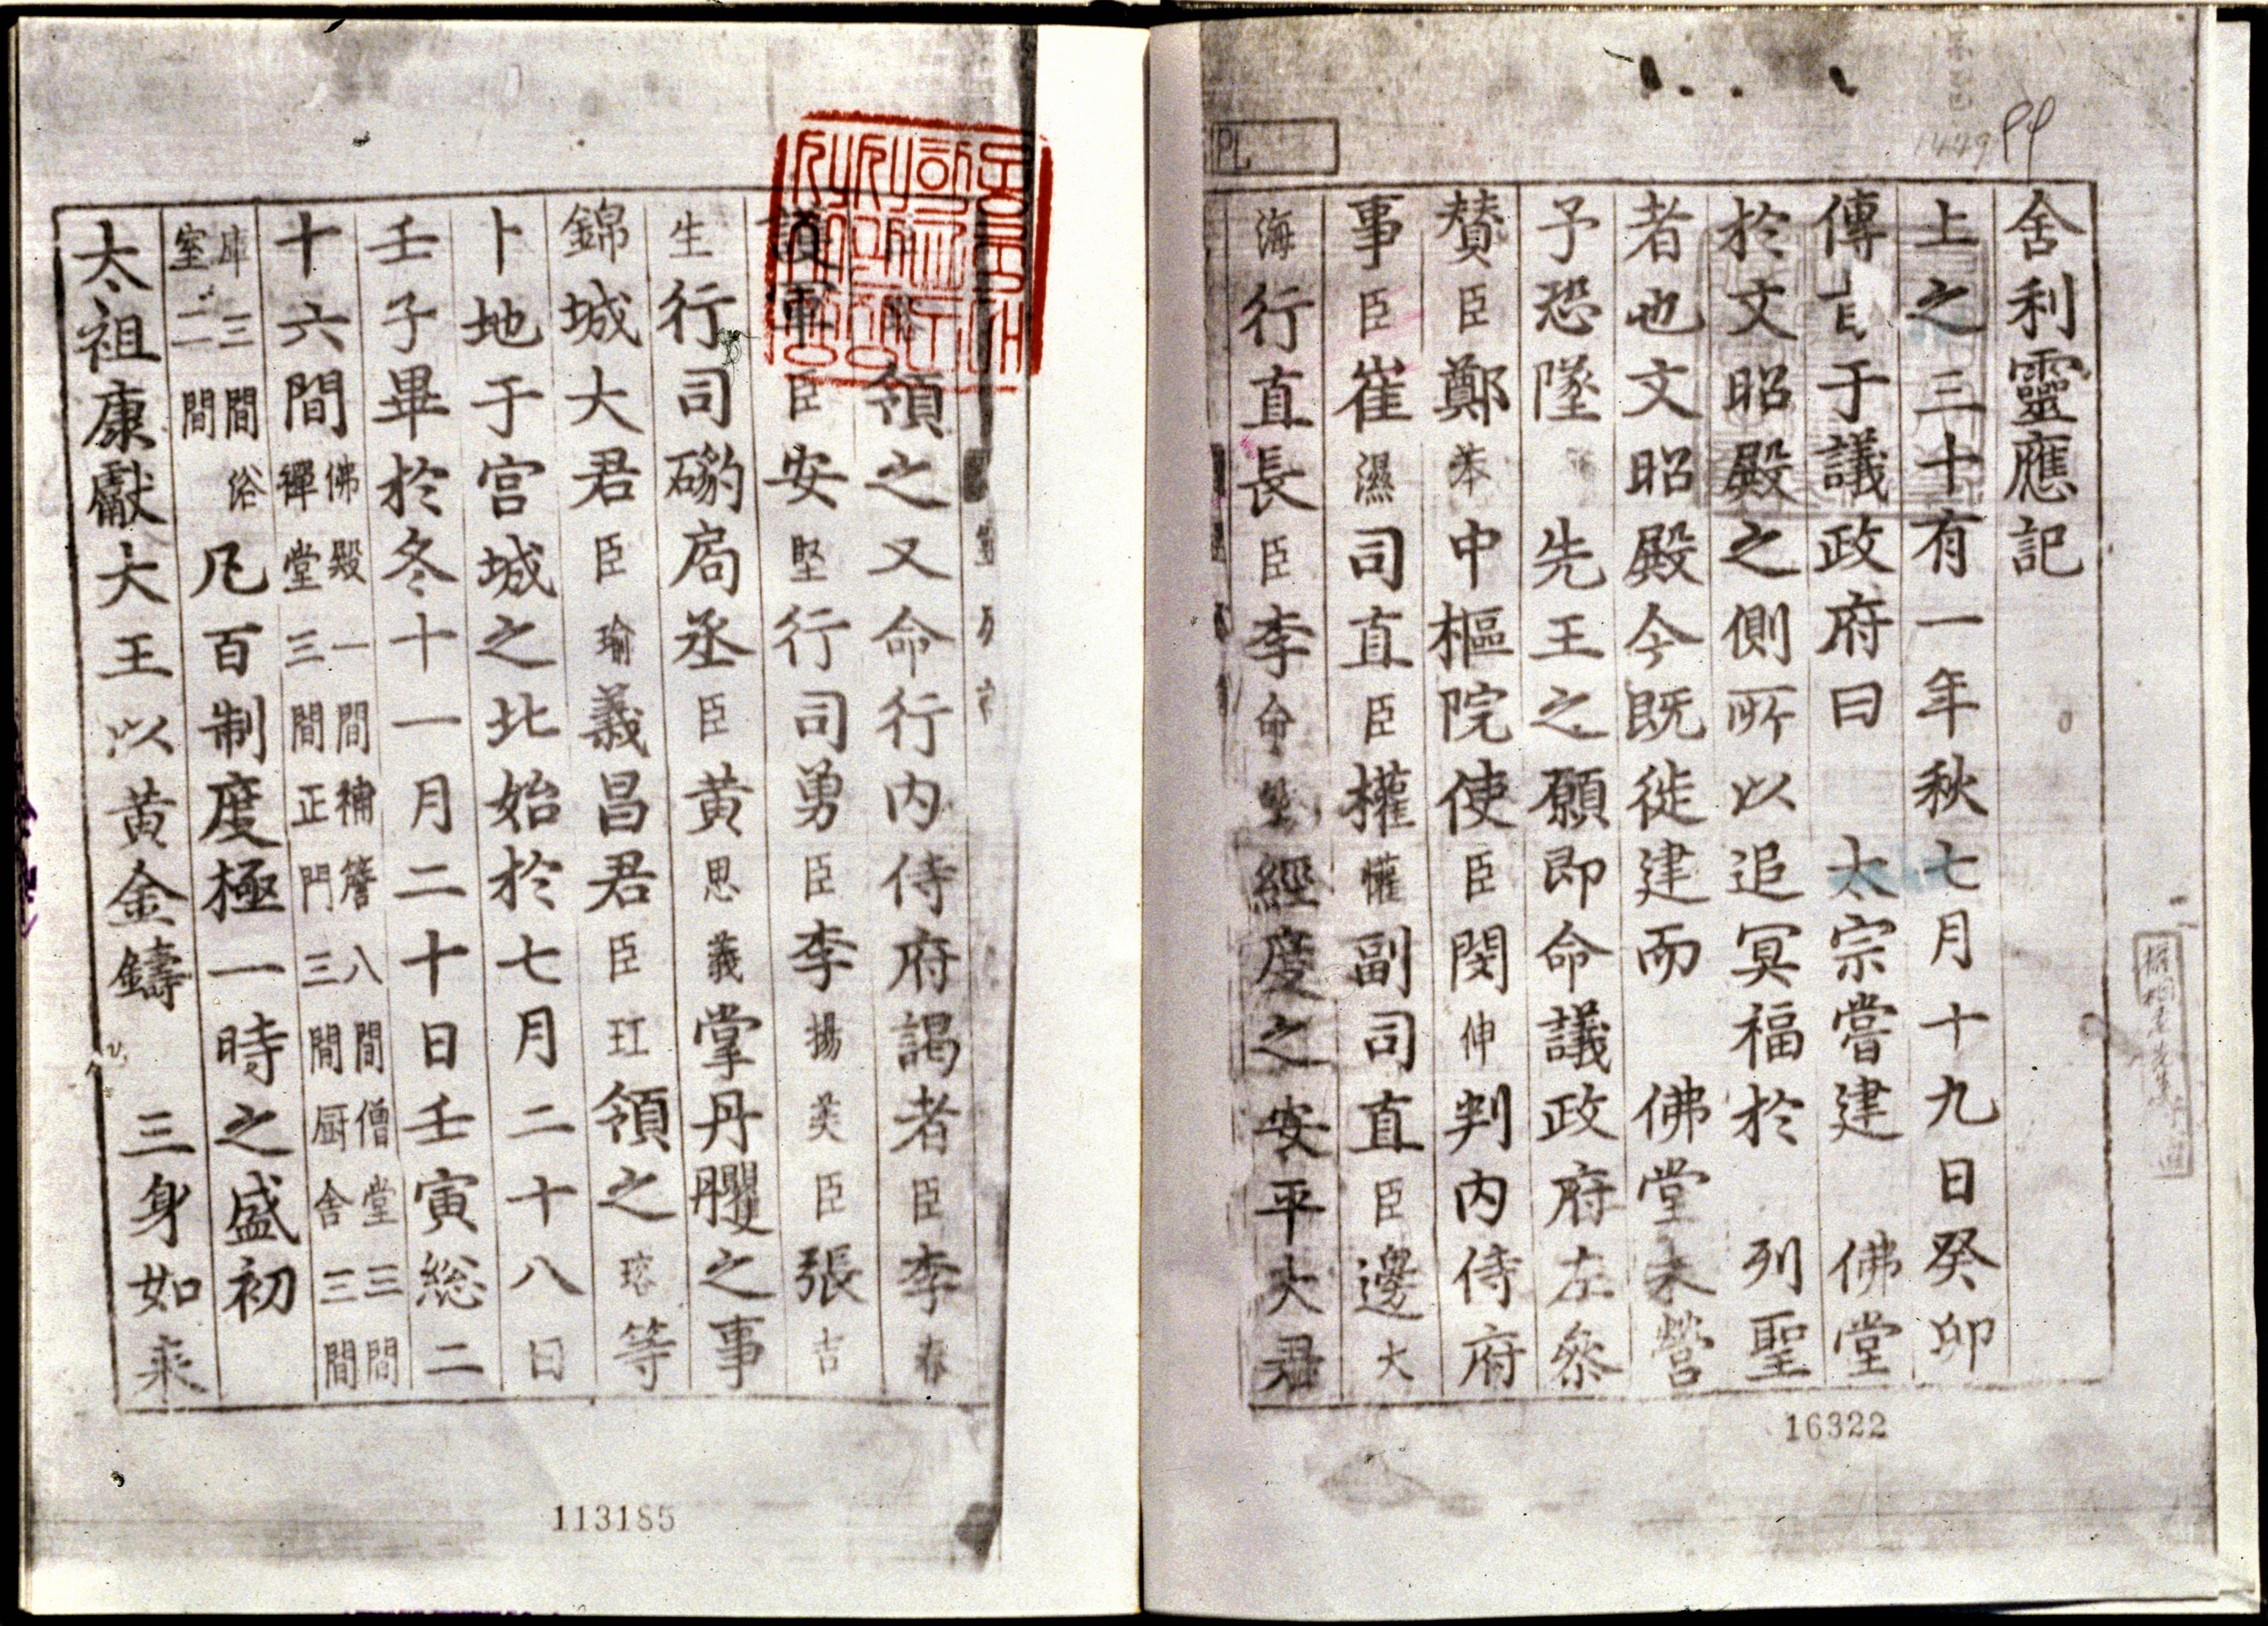 舍利靈應記
上之三十有一年秋七月十九日癸卯
傳旨于議政府曰 太宗嘗建 佛堂
於文昭殿之側所以追冥福於 列聖
者也文昭殿今既徙建而 佛堂未營
予恐墜 先王之願即命議政府左叅
賛臣鄭苯中樞院使臣閔伸判内侍府
事臣崔濕司直臣權懽副司直臣邊大
海行直長臣李命 經度之安平大君
領之又命行内侍府謁者臣李春
護軍臣安堅行司勇臣李揚美臣張吉
生行司磟局丞臣黄思義掌丹雘之事
錦城大君臣瑜義昌君臣玒領之瑢等
卜地于宫城之北始於七月二十八日
壬子畢於冬十一月二十日壬寅総二
十六間佛殿一間補簷八間僧堂三間
禪堂三間正門三間厨舍三間
庫三間浴
室二間
凡百制度極一時之盛初
太祖康獻大王以黄金鑄 三身如来
PL
16322
113185